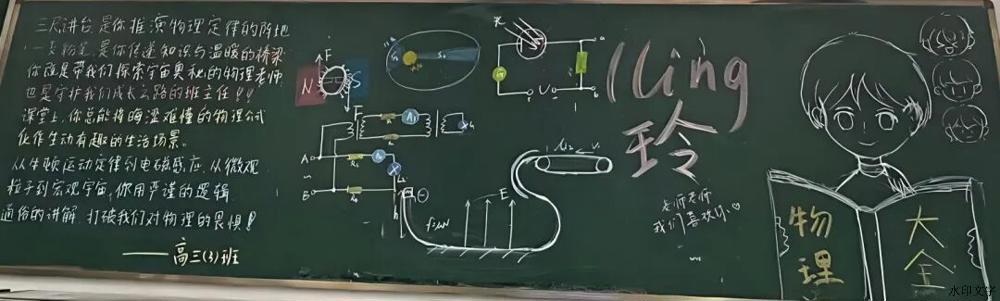 三尺讲台,是你推演物理定律的阵地
一支粉笔,是你传递知识与温暖的桥梁
你既是带我们探索宇宙奥秘的物理老师
也是守护我们成长之路的班主任!!
课堂上,你总能将晦涩难懂的物理公式
化作生动有趣的生活场景。
从牛顿运动定律到电磁感应,从微观
粒子到宏观宇宙,你用严谨的逻辑
通俗的讲解,打破我们对物理的畏惧!
——高三(3)班
F
N S
F
A
B
E
f=μN
U
a
b
ling
玲
老师老师
我们喜欢你
物理
大全
水印文字